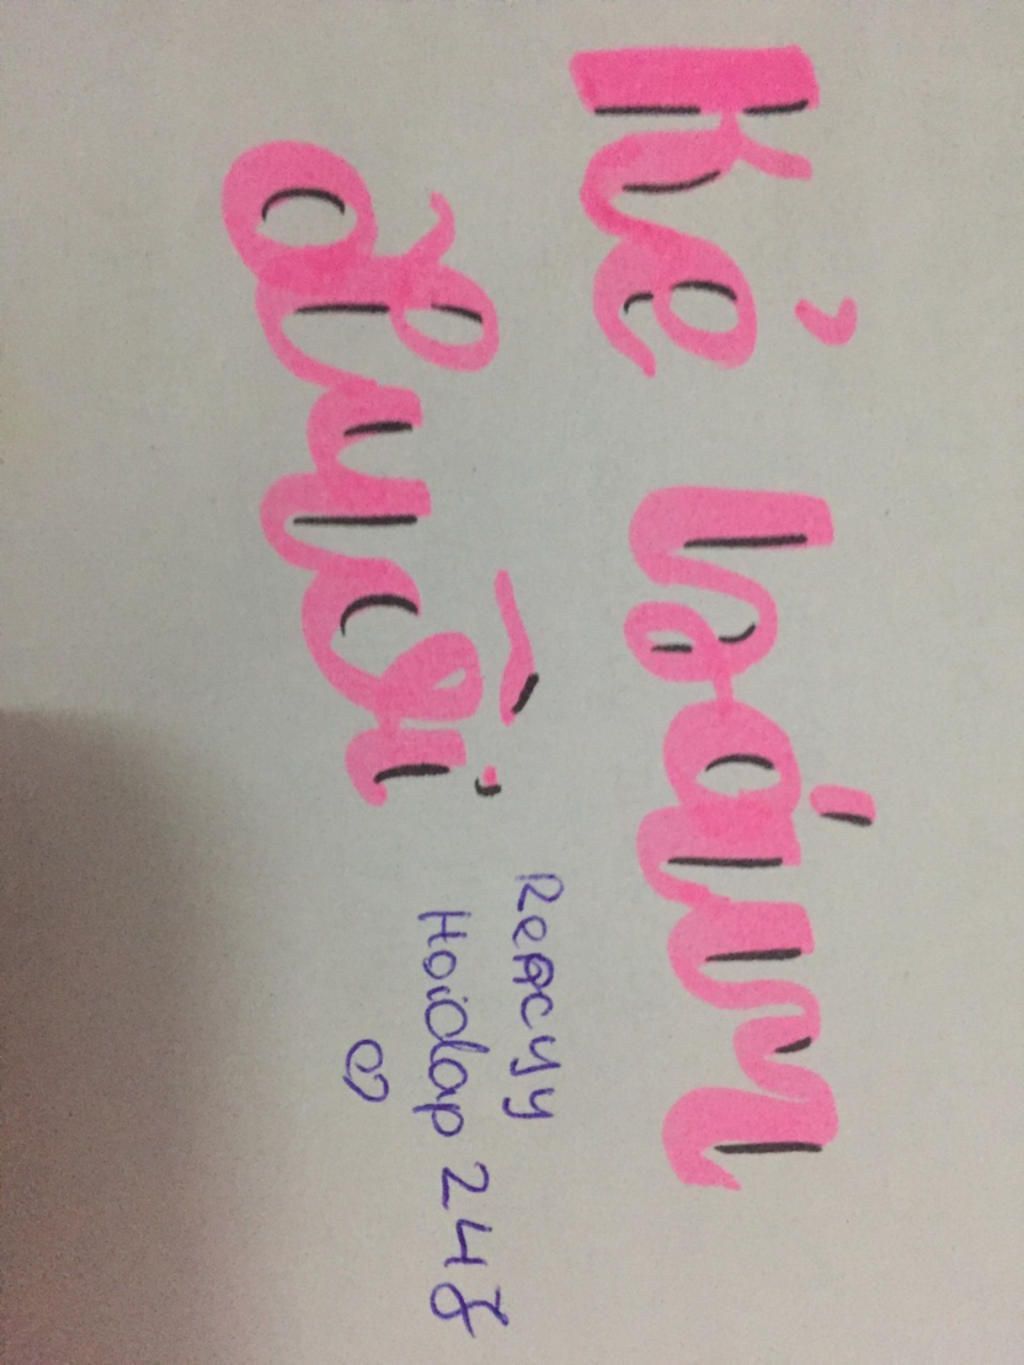 Kẻ bám
đuôi
Reacyy
Hoidap 248